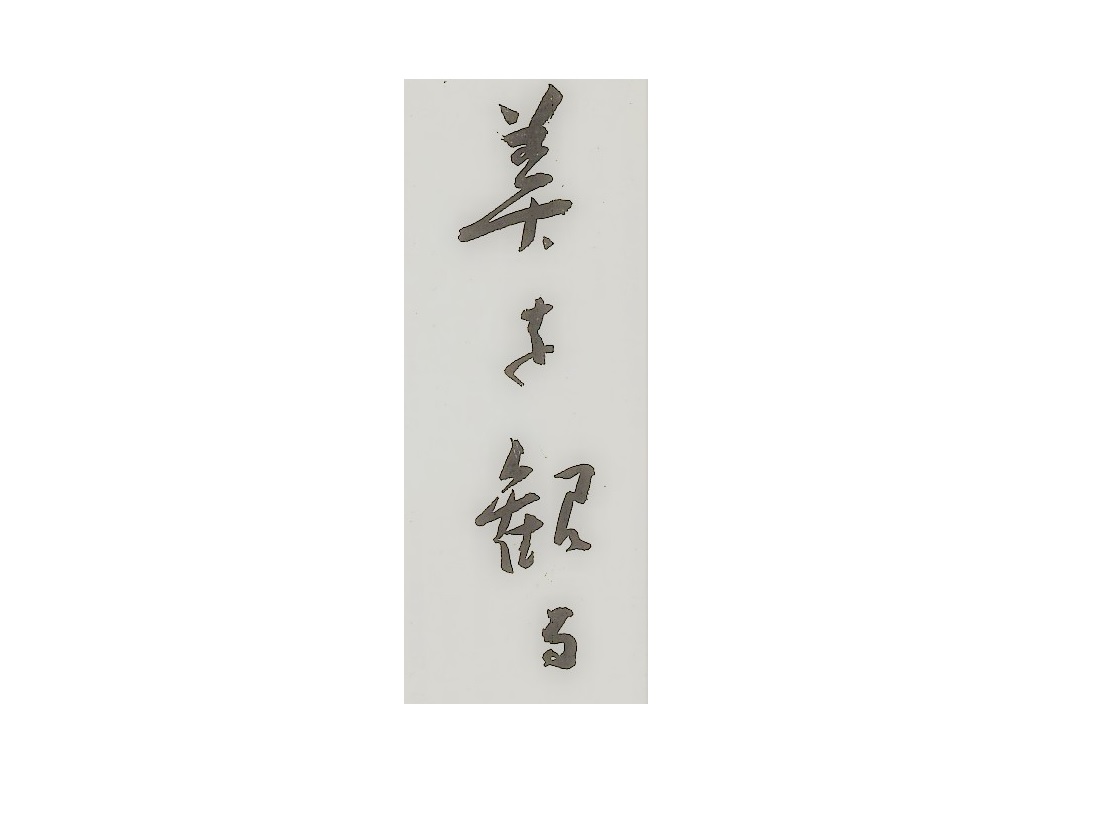 美を観る